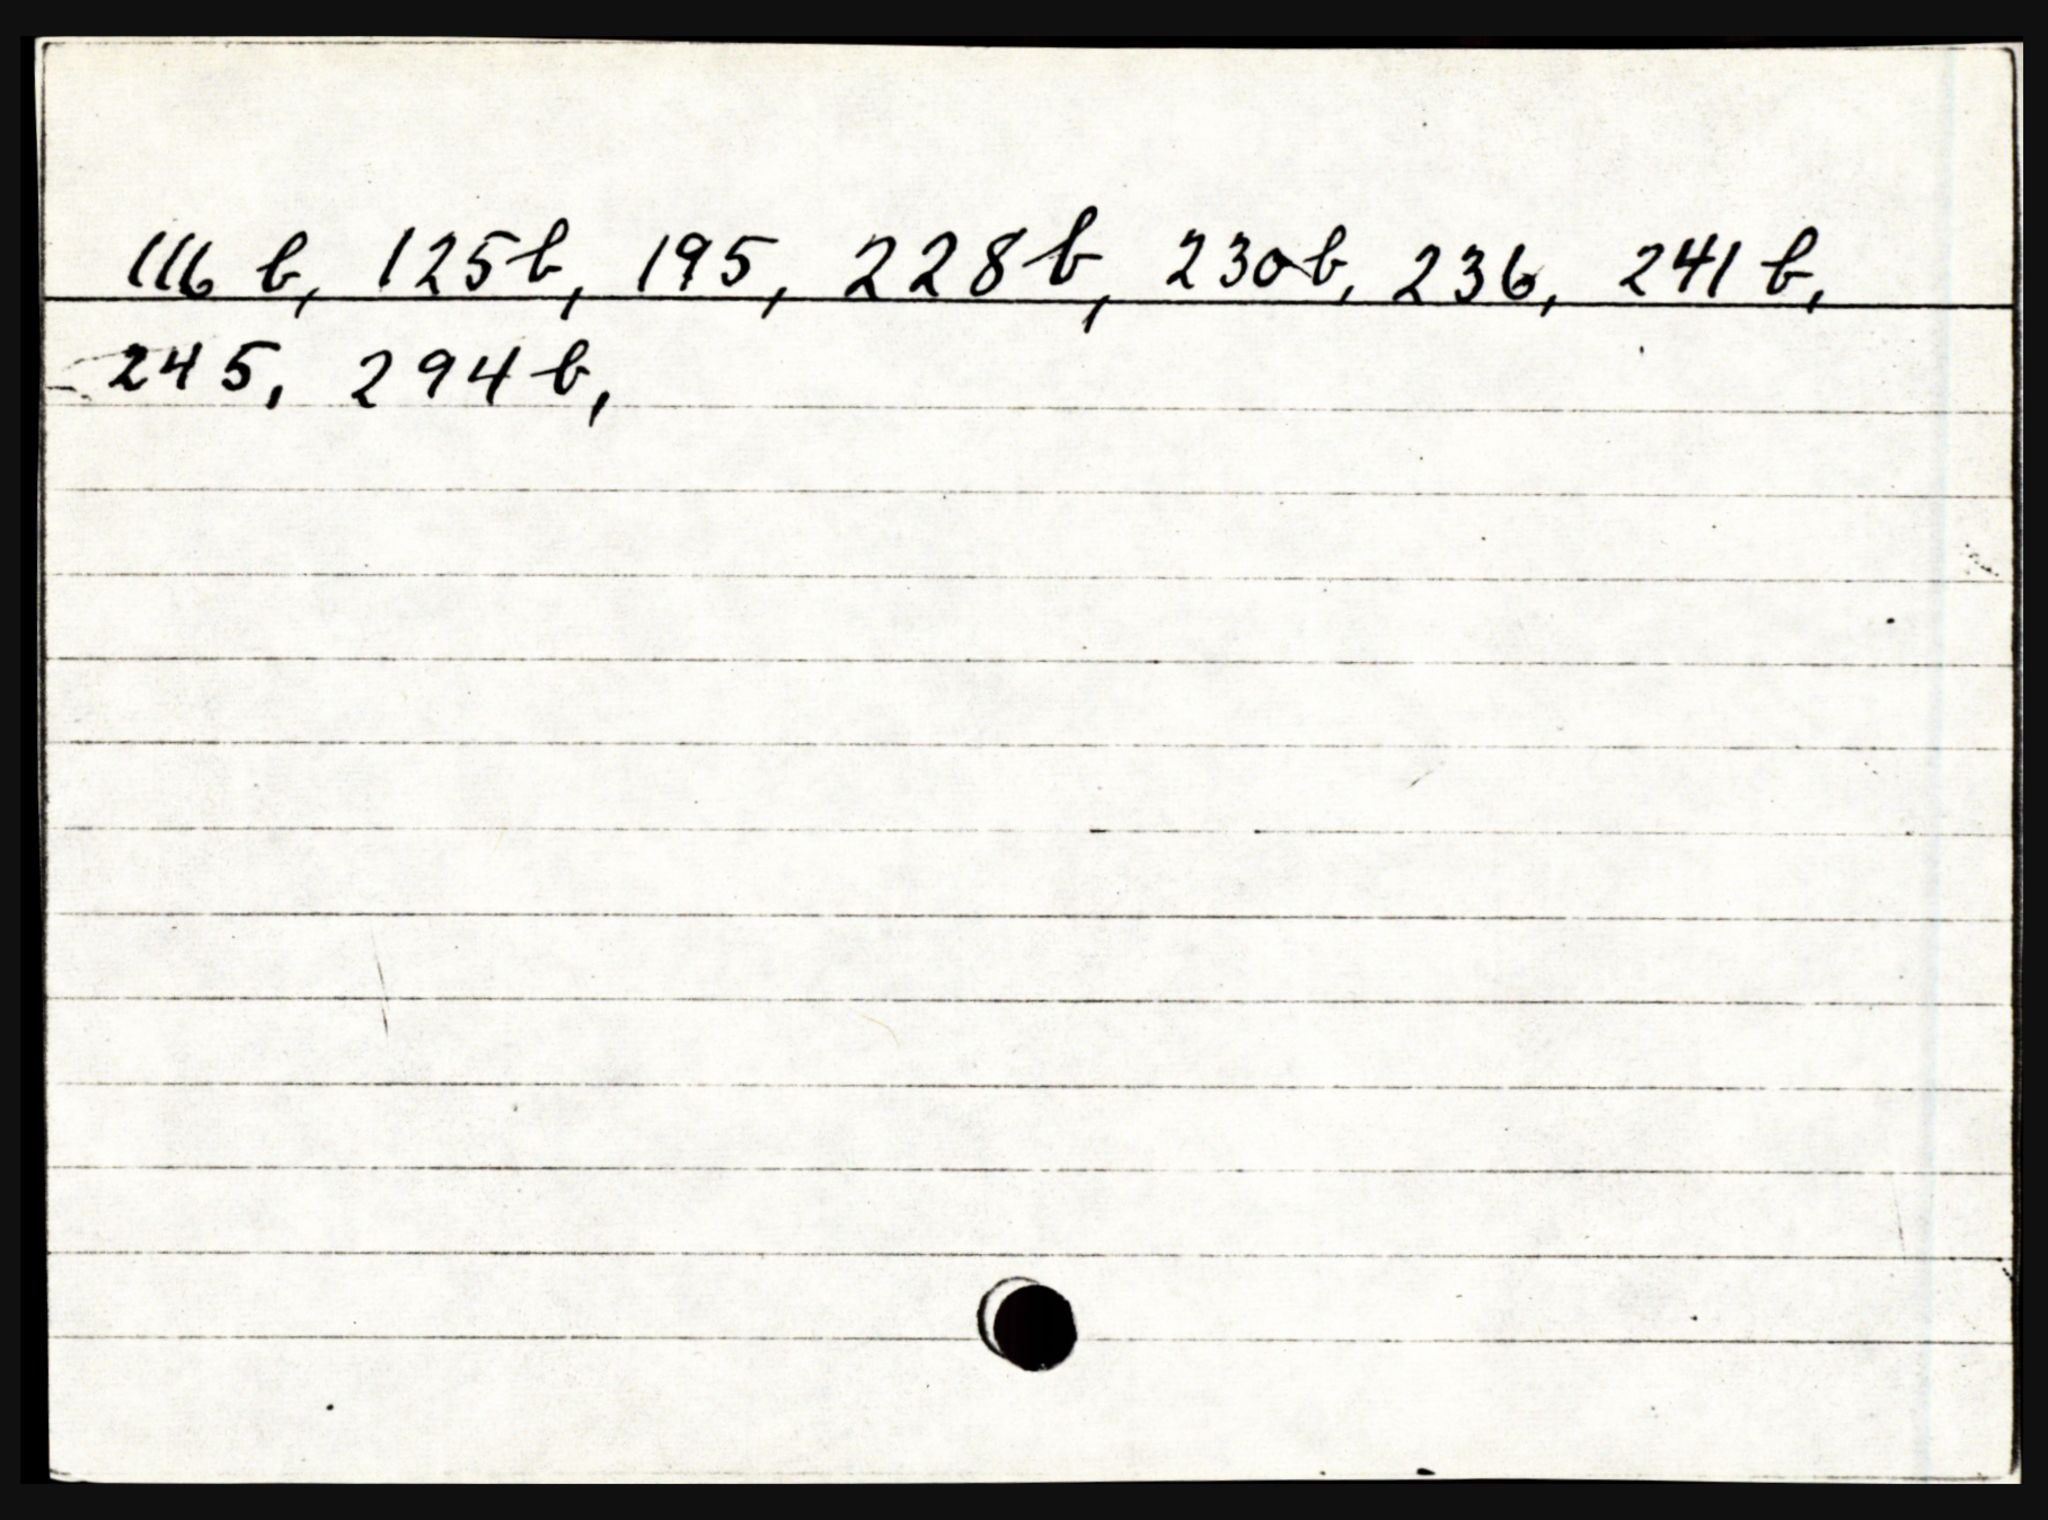 116 b, 125b, 195, 228b, 230b, 236, 241 b,
245, 294b,